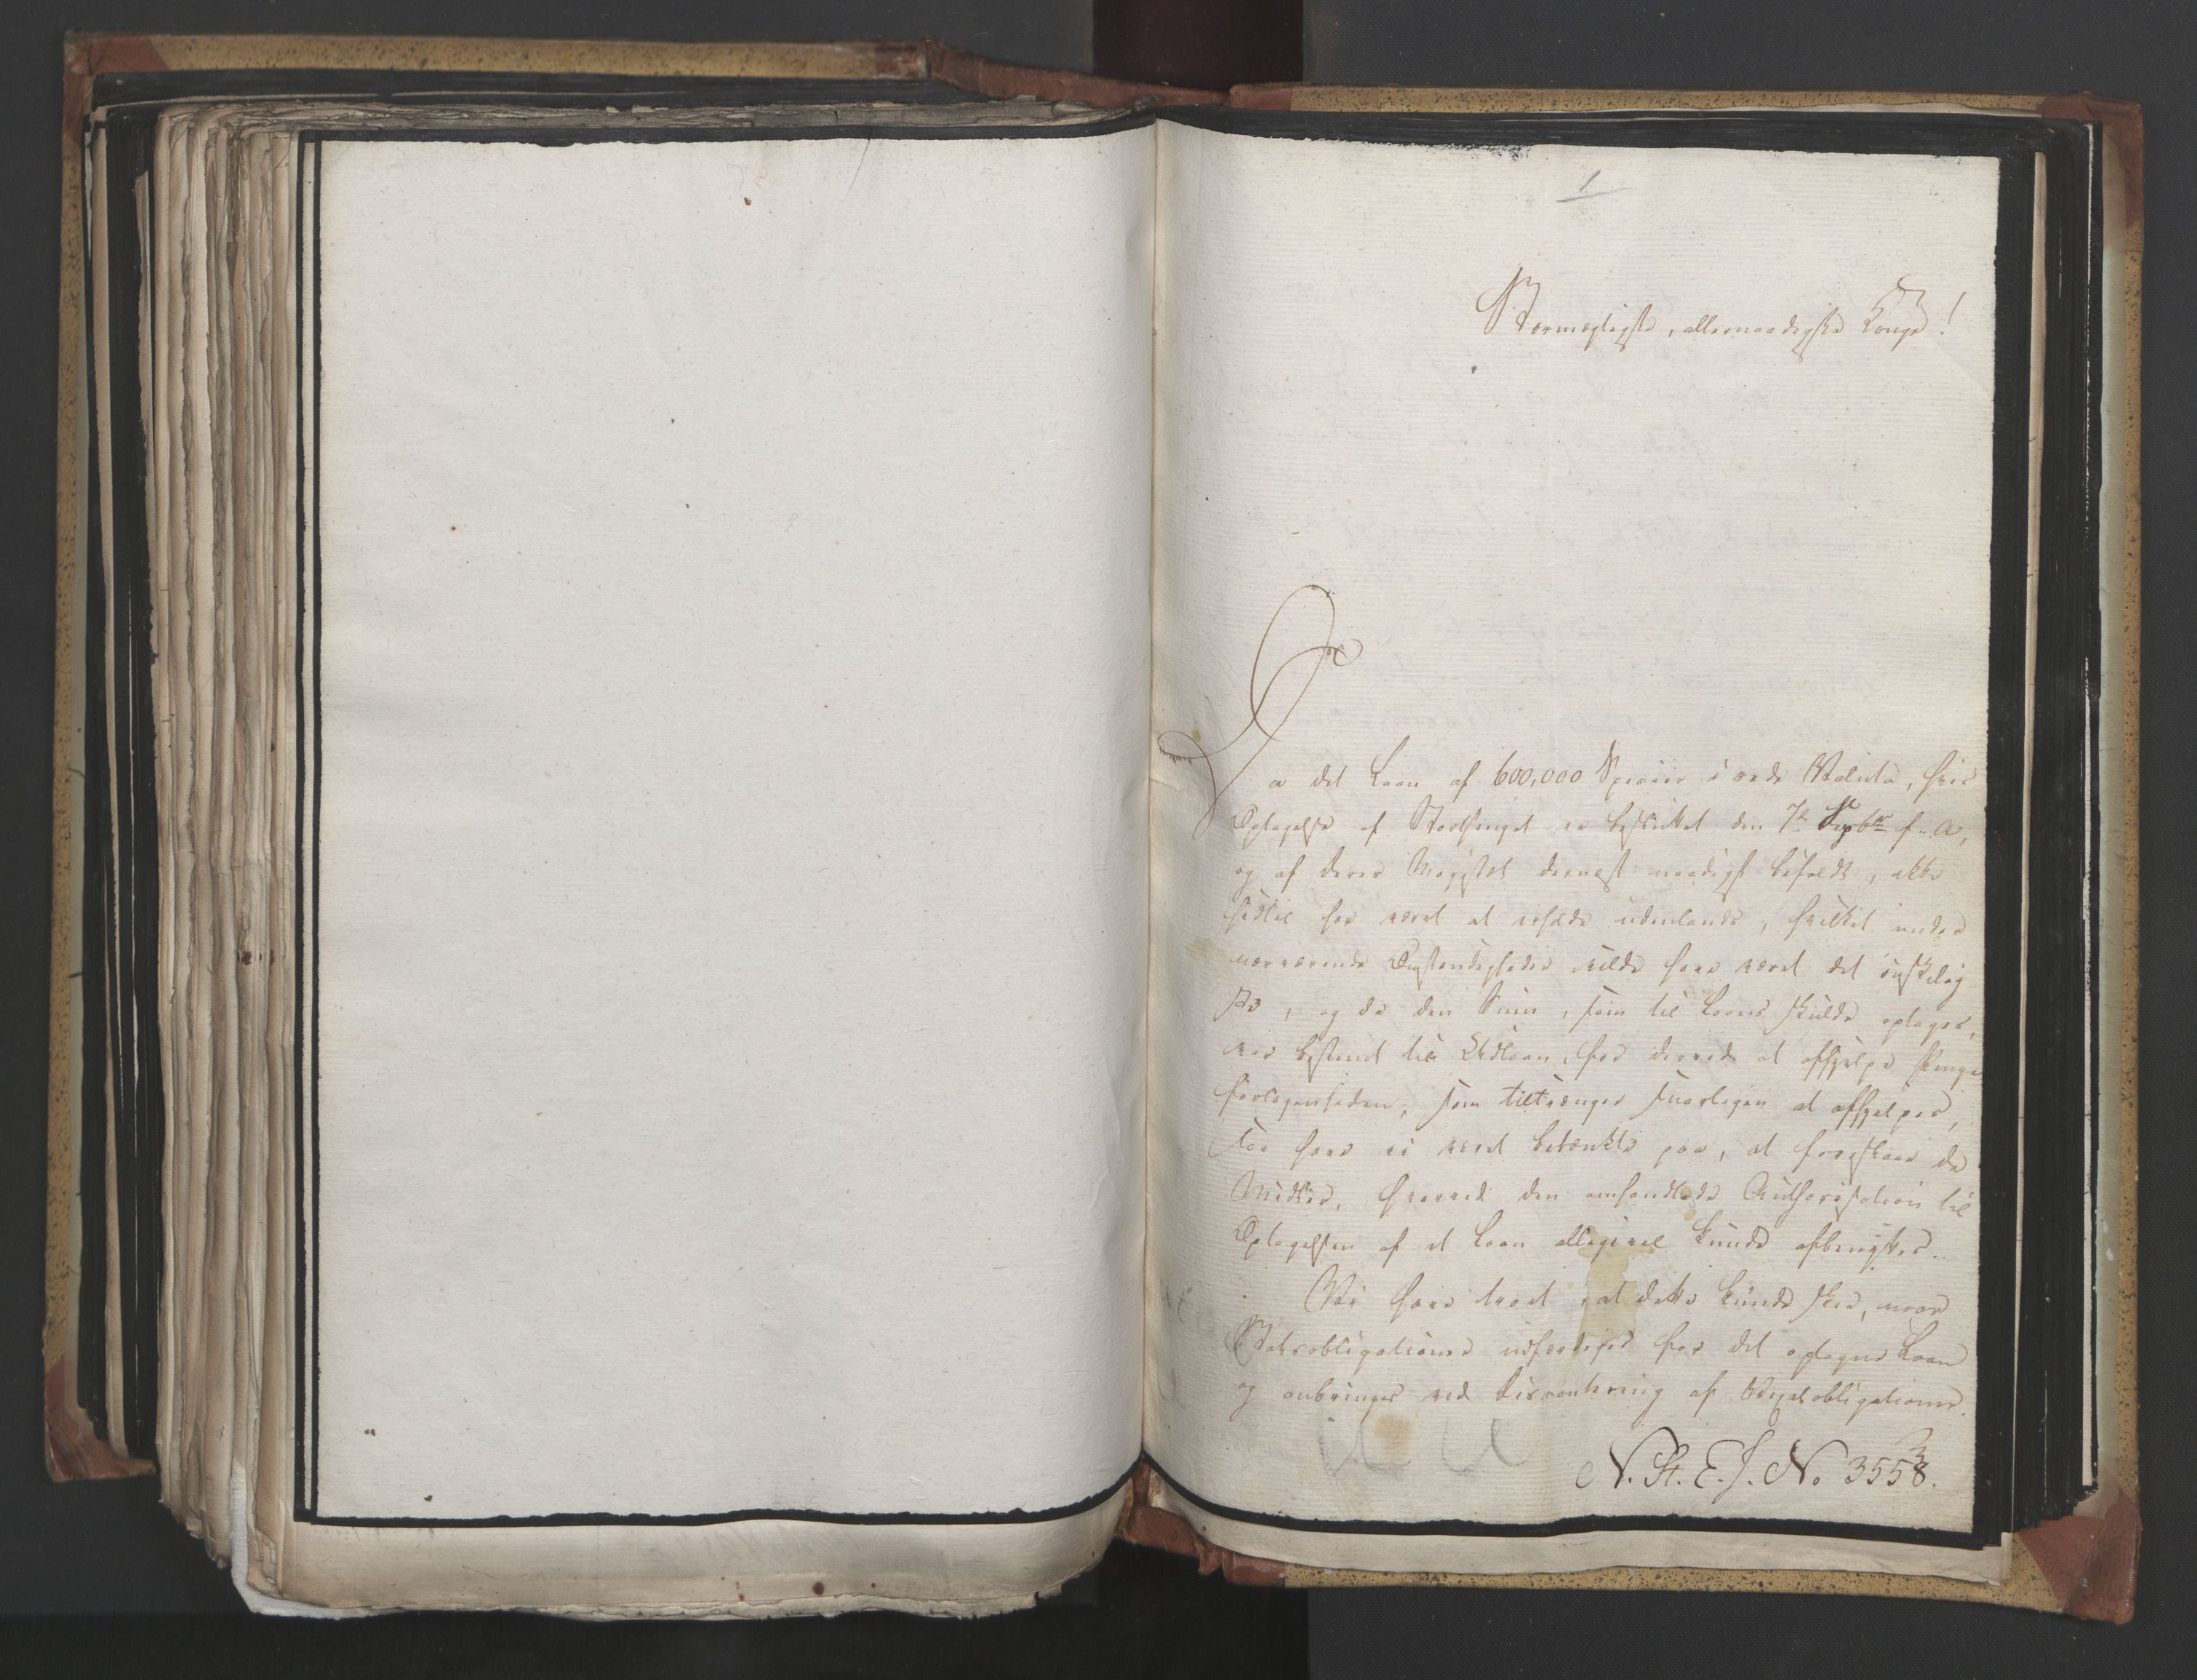 1
Stormægtigste, allernaadigste Konge!
Da det Laan af 600,000 Specier i rede Valuta, hvis
Optagelse af Storthinget er besluttet den 7de Septbr f. A,
og af Deres Majestæt dernæst naadigst bifaldt, ikke
hidtil har været at erholde udenlands, hvilket under
nærværende Omstændigheder vilde have været det ønskelig
ste, og da den Sum, som til Laans skulde optages,
var bestemt til Udlaan, for derved at afhjelpe Penge
forlegenheden, som tiltrænger snarligen at afhjelpes,
saa have vi været betænkte paa, at foreslaae de
Midler, hvorved den omhandlede Authorisation til
Optagelsen af et Laan alligevel kunde afbenyttes.
Vi have troet, at dette kunde skee, naar
Statsobligationer udfærdiges for det optagne Laan
og anbringes ved Discontering af Vexelobligationer.
N. St. E. J. No 3558.